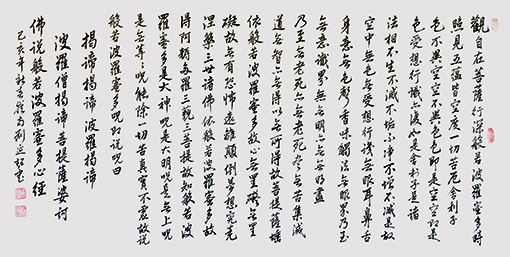 觀自在菩薩行深般若波羅蜜多時
照見五蘊皆空度一切苦厄舍利子
色不異空空不異色色即是空空即是
色受想行識亦復如是舍利子是諸
法相不生不滅不垢不淨不增不減是故
空中無色無受想行識無眼耳鼻舌
身意無色聲香味觸法無眼界乃至
無意識界無無明亦無無明盡
乃至無老死亦無老死盡無苦集滅
道無智亦無得以無所得故菩提薩埵
依般若波羅蜜多故心無罣礙無罣
礙故無有恐怖遠離顛倒夢想究竟
涅槃三世諸佛依般若波羅蜜多故
得阿耨多羅三藐三菩提故知般若波
羅蜜多是大神咒是大明咒是無上咒
是無等等咒能除一切苦真實不虛故說
般若波羅蜜多咒即說咒曰
揭諦揭諦波羅揭諦
波羅僧揭諦菩提薩婆訶
佛說般若波羅蜜多心經
己亥年秋